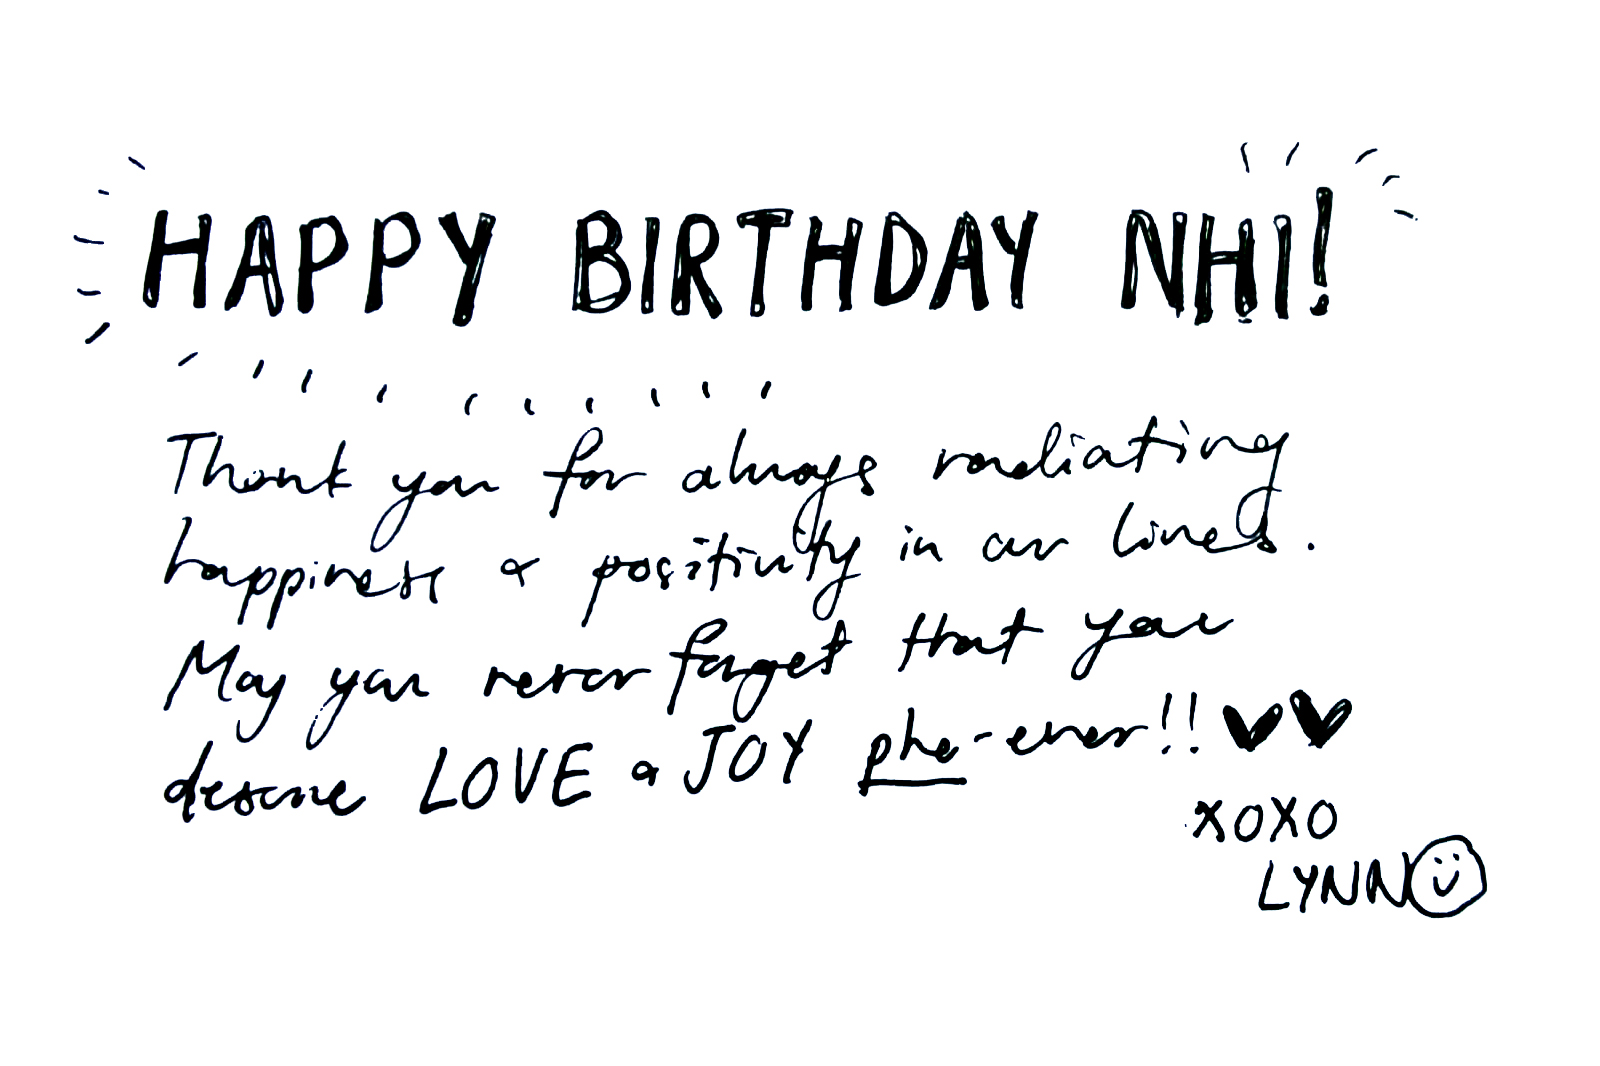 HAPPY BIRTHDAY NHI!
Thank you for always radiating
happiness & positivity in our lives.
May you never forget that you
deserve LOVE & JOY pho-ever!!
XOXO
LYNN